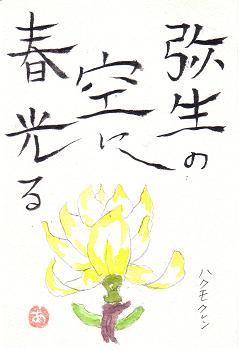 弥生の
空に
春光る
ハクモクレン
あ